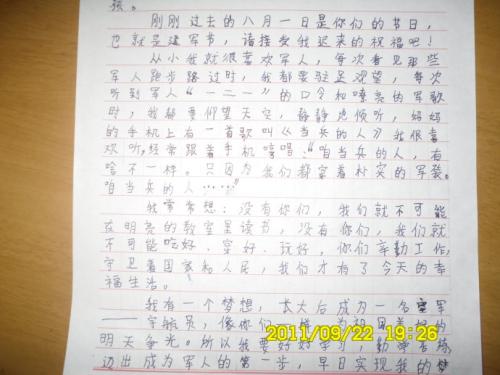 强。
刚刚过去的八月一日是你们的节日，
也就是建军节，请接受我迟来的祝福吧！
从小我就很喜欢军人，每次看见那些
军人跑步路过时，我都要驻足观望，每次
听到军人“一二一”的口令和嘹亮的军歌
时，我都要仰望天空，静静地倾听，妈妈
的手机上有一首歌叫《当兵的人》我很喜
欢听，经常跟着手机哼唱：“咱当兵的人，有
啥不一样。只因为我们都穿着朴实的军装。
咱当兵的人……”
我常常想：没有你们，我们就不可能
在明亮的教室里读书，没有你们，我们就
不可能吃好、穿好、玩好，你们辛勤工作，
守卫着国家和人民，我们才有了今天的幸
福生活。
我有一个梦想，长大后成为一名空军
——宇航员，像你们一样，为祖国美好的
明天争光。所以我要好好学习，勤学苦练
迈出成为军人的第一步，早日实现我的梦
2011/09/22 19:26